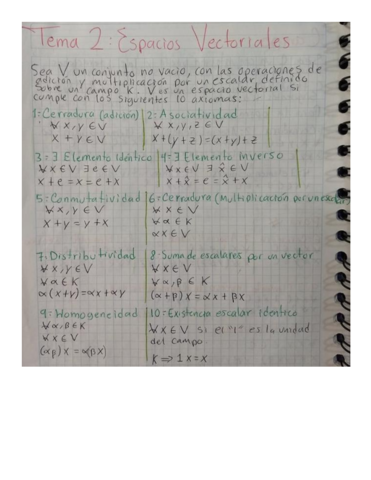 Tema 2: Espacios Vectoriales
Sea V un conjunto no vacío, con las operaciones de
adición y multiplicación por un escalar, definido
sobre un campo K. V es un espacio vectorial si
cumple con los siguientes 10 axiomas:
1: Cerradura (adición)
∀ x, y ∈ V
x + y ∈ V
2: Asociatividad
∀ x, y, z ∈ V
x + (y + z) = (x + y) + z
3: ∃ Elemento Idéntico
∀ x ∈ V ∃ e ∈ V
x + e = x = e + x
4: ∃ Elemento inverso
∀ x ∈ V ∃ x̂ ∈ V
x + x̂ = e = x̂ + x
5: Conmutatividad
∀ x, y ∈ V
x + y = y + x
6: Cerradura (Multiplicación por un escalar)
∀ x ∈ V
∀ α ∈ K
αx ∈ V
7: Distributividad
∀ x, y ∈ V
∀ α ∈ K
α(x + y) = αx + αy
8: Suma de escalares por un vector
∀ x ∈ V
∀ α, β ∈ K
(α + β) x = αx + βx
9: Homogeneidad
∀ α, β ∈ K
∀ x ∈ V
(αβ) x = α(βx)
10: Existencia escalar idéntico
∀ x ∈ V si el "1" es la unidad
del campo
K ⇒ 1 x = x